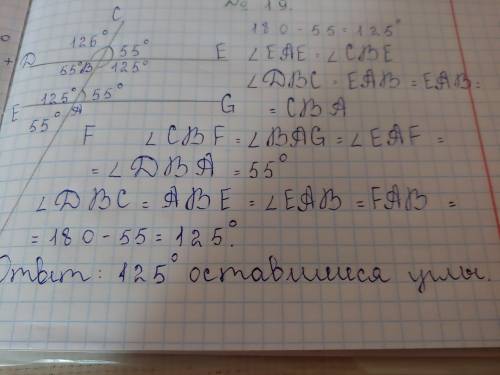 № 19.
C
180 - 55 = 125°
125° 55°
D E
55° B 125°
∠EAE = ∠CBE
∠DBC = EAB = EAB =
= CBA
125° 55°
E A G
55°
F
∠CBF = ∠BAG = ∠EAF =
= ∠DBA = 55°
∠DBC = ABE = ∠EAB = FAB =
= 180 - 55 = 125°.
Ответ: 125° оставшиеся углы.